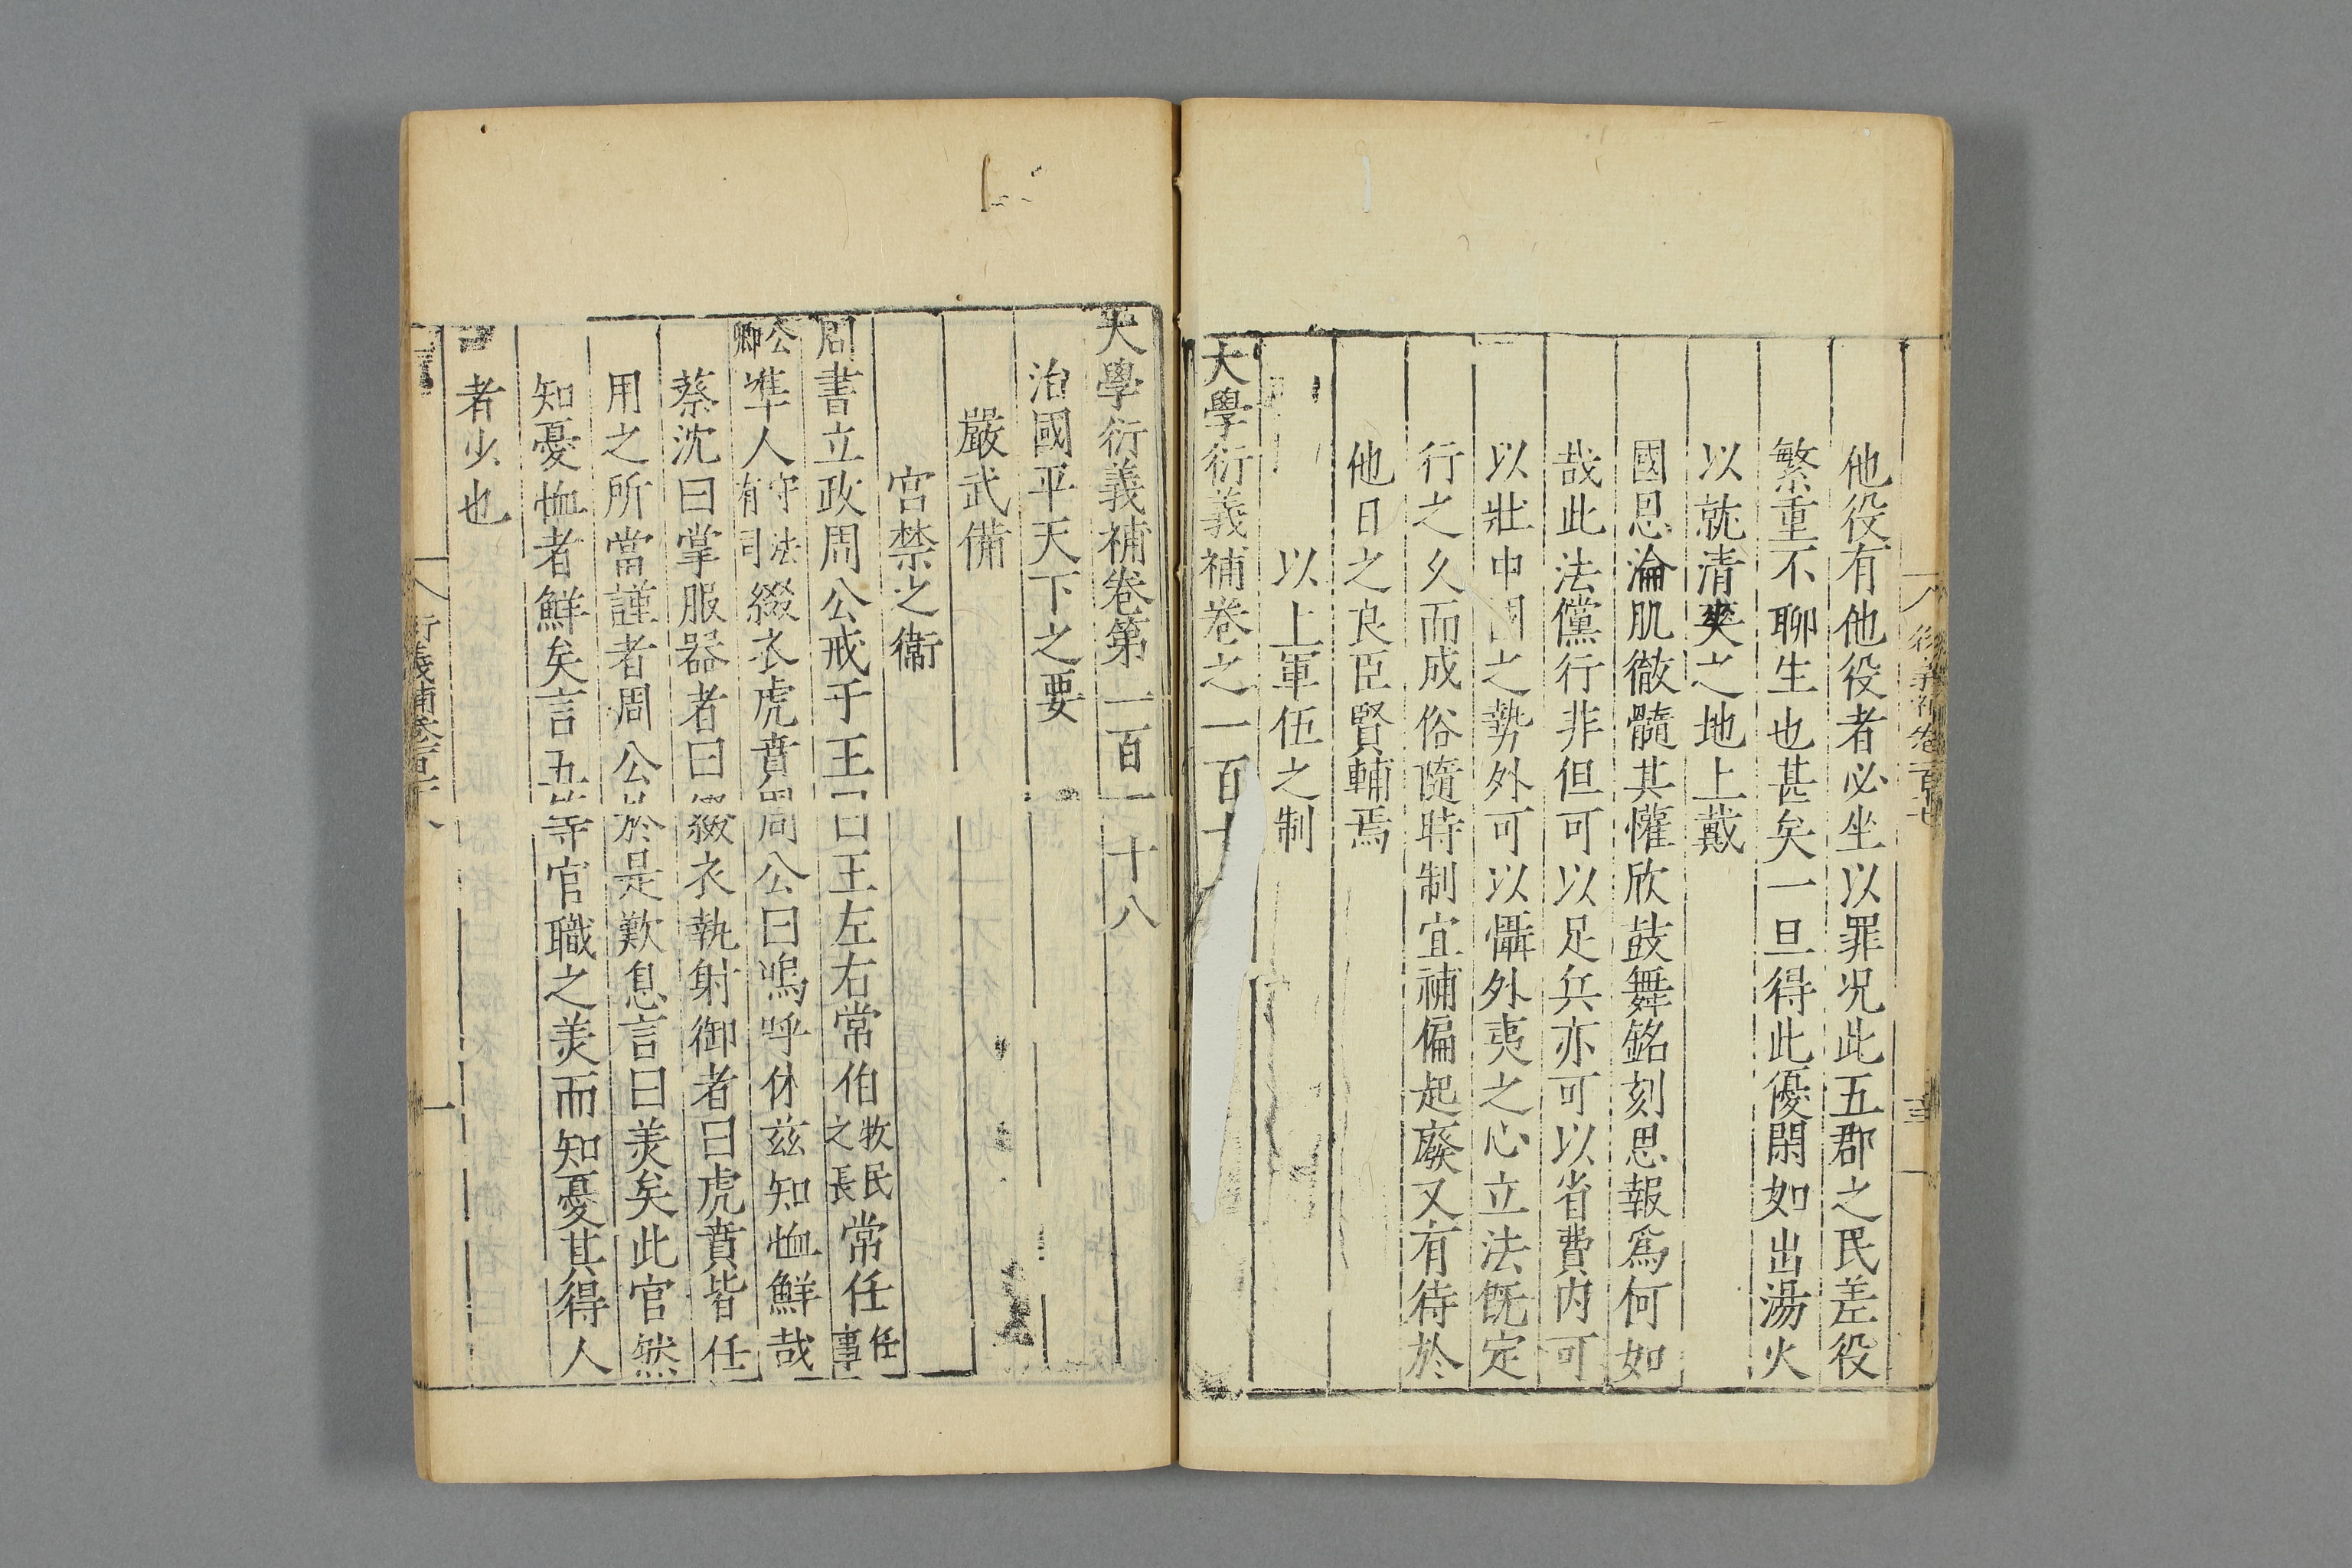 他役有他役者必坐以罪况此五郡之民差役
繁重不聊生也甚矣一旦得此優閑如出湯火
以就清爽之地上戴
國恩淪肌徹髓其懽欣鼓舞銘刻思報爲何如
哉此法儻行非但可以足兵亦可以省費内可
以壯中国之勢外可以懾外夷之心立法既定
行之久而成俗隨時制宜補偏起廢又有待於
他日之良臣賢輔焉
以上軍伍之制
大學衍義補卷之一百十
大學衍義補卷第一百一十八
治國平天下之要
嚴武備
宮禁之衞
周書立政周公戒于王曰王左右常伯牧民之長常任任事
公卿準人守法有司綴衣虎賁周公曰嗚呼休兹知恤鮮哉
蔡沈曰掌服器者曰綴衣執射御者曰虎賁皆任
用之所當謹者周公於是歎息言曰美矣此官然
知憂恤者鮮矣言五等官職之美而知憂其得人
者少也
衍義補卷百十八
一